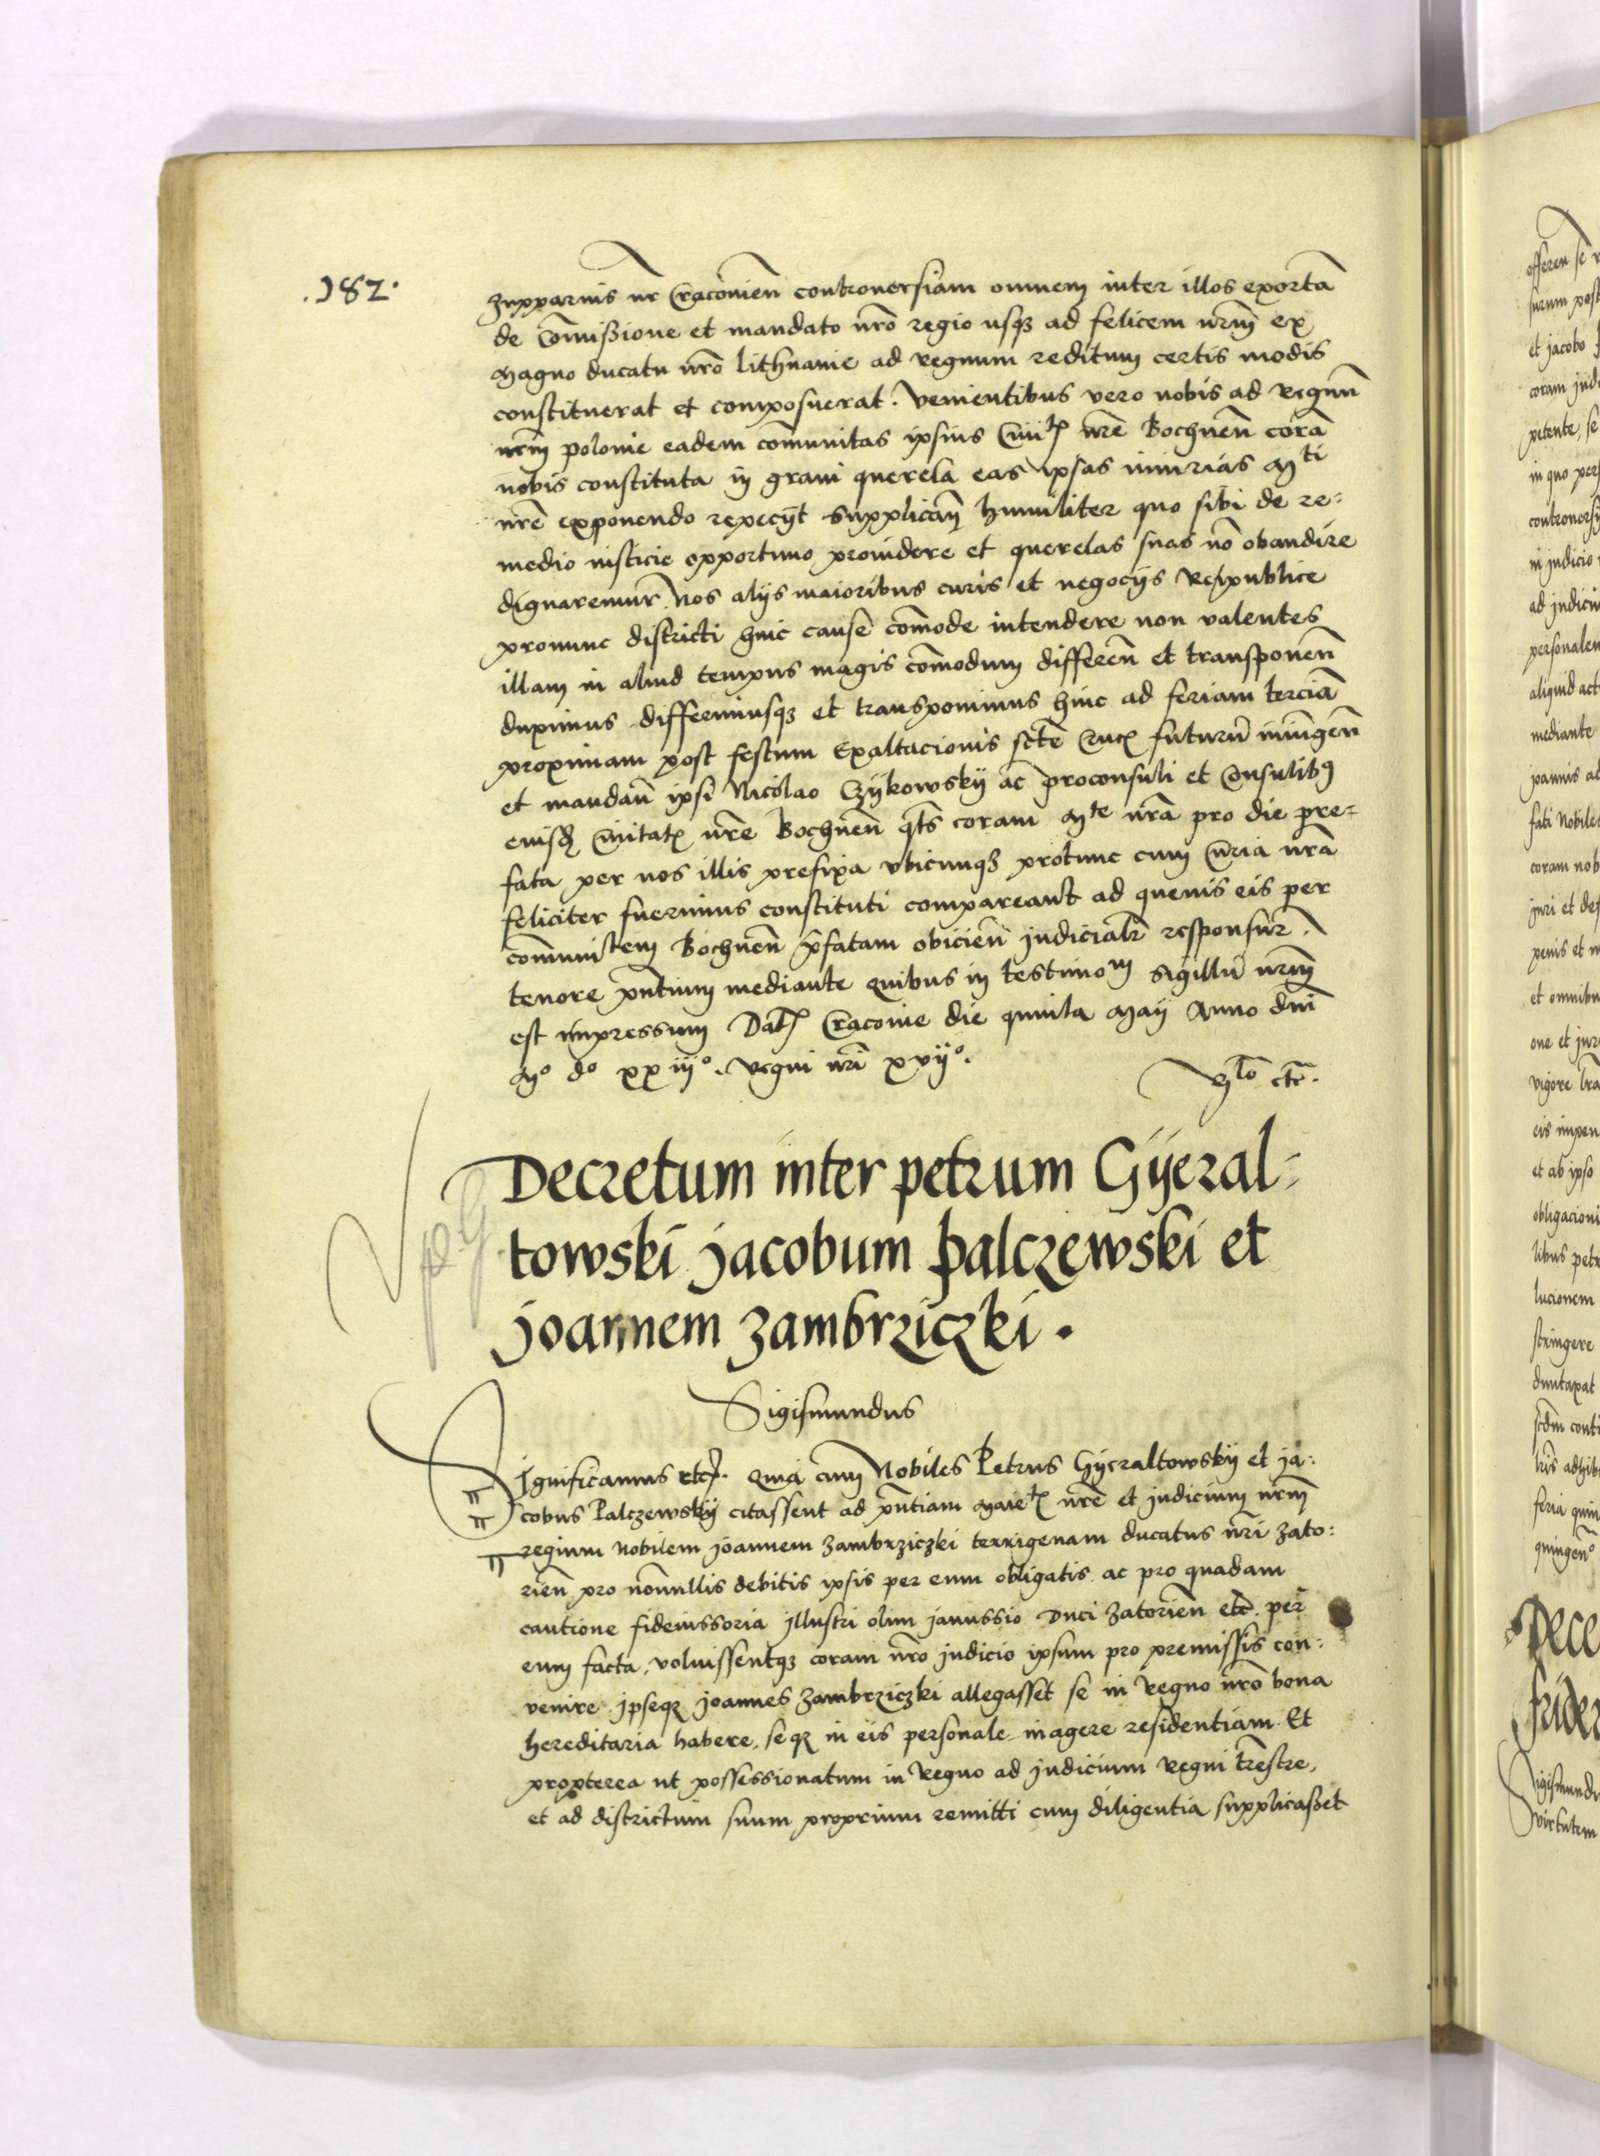 .182.
zupparius nr Cracovien controversiam omnem inter illos exorta
de comissione et mandato nro regio usq ad felicem nrm ex
magno ducatu nro lithuanie ad regnum reditum certis modis
constituerat et composuerat. Venientibus vero nobis ad Regnum
nrm polonie eadem comunitas ipsius Civitis nre Bochnen cora
nobis constituta in gravi querela eas ipsas iniurias Mti
nre exponendo repecyt supplicans humiliter quo sibi de re-
medio iusticie opportuno providere et querelas suas no obaudire
dignaremur. Nos alys maioribus curis et negocys Reipublice
pronunc districti huic cause comode intendere non valentes
illam in aliud tempus magis comodum differen et transponen
duximus differimusq et transponimus hinc ad feriam tercia
proximam post festum Exaltacionis scte Crucis futuru iniungen
et mandan ipsi Nicolao Czykowsky ac proconsuli et Consulibus
eiusd Civitatis nre Bochnen qts coram Mte nra pro die pre-
fata per nos illis prefixa ubicunq protunc cum Curia nra
feliciter fuerimus constituti compareant ad quevis eis per
comunitem Bochnen pfatam obicien judicialr responsur.
tenore pntium mediante quibus in testimom sigillu nrm
est impressum Dat Cracovie die quinta May Anno dni
Mo do xx iijo. regni nri xvijo.
Rlo etc.
Decretum inter petrum Gyeral-
towski jacobum palczewski et
joannem zambrziczki.
Sigismundus
Significamus etc. quia cum Nobiles Petrus Gyeraltowsky et ja:
cobus Palczewsky citassent ad pntiam Maietis nre et judicium nrm
regium nobilem joannem zambrziczki terrigenam ducatus nri zato:
rien pro nonnullis debitis ipsis per eum obligatis ac pro quadam
cautione fideiussoria illustri olim janussio duci zatorien etc. per
eum facta, voluissentq coram nro judicio ipsum pro premissis con:
venire ipseq joannes zambrziczki allegasset se in Regno nro bona
hereditaria habere, seq in eis personale magere residentiam Et
propterea ut possessionatum in Regno ad judicium Regni trestre,
et ad districtum suum proprium remitti cum diligentia supplicasset